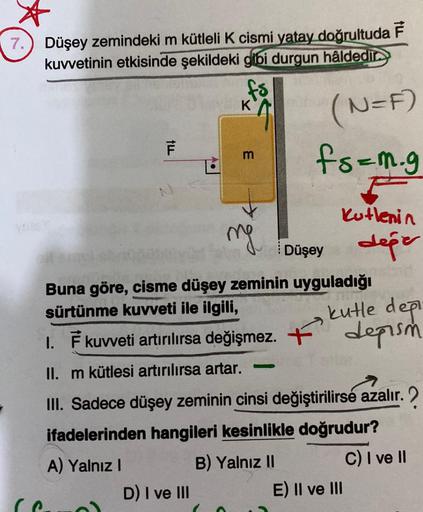 7. Düşey zemindeki m kütleli K cismi yatay doğrultuda F
kuvvetinin etkisinde şekildeki gibi durgun hâldedir.
fs
K
(N=F)
F
m
fs=m.g
kütlenin
mg
değer
Düşey
Buna göre, cisme düşey zeminin uyguladığı
sürtünme kuvveti ile ilgili,
kutle
I. F kuvveti artırılırsa değişmez. +
II. m kütlesi artırılırsa artar. —
III. Sadece düşey zeminin cinsi değiştirilirse azalır. ?
ifadelerinden hangileri kesinlikle doğrudur?
A) Yalnız I B) Yalnız II C) I ve II
D) I ve III E) II ve III